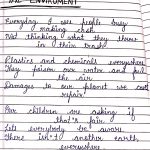 THE ENVIROMENT
Everyday I see people busy
making cash
Not thinking what they throw
in their trash
Plastics and chemicals everywhere
They poison our water and foul
the air
Damages to our planet we cant
repair
Our children are asking if
that's fair
Lets everybody be aware
there isn't another earth
everywhere